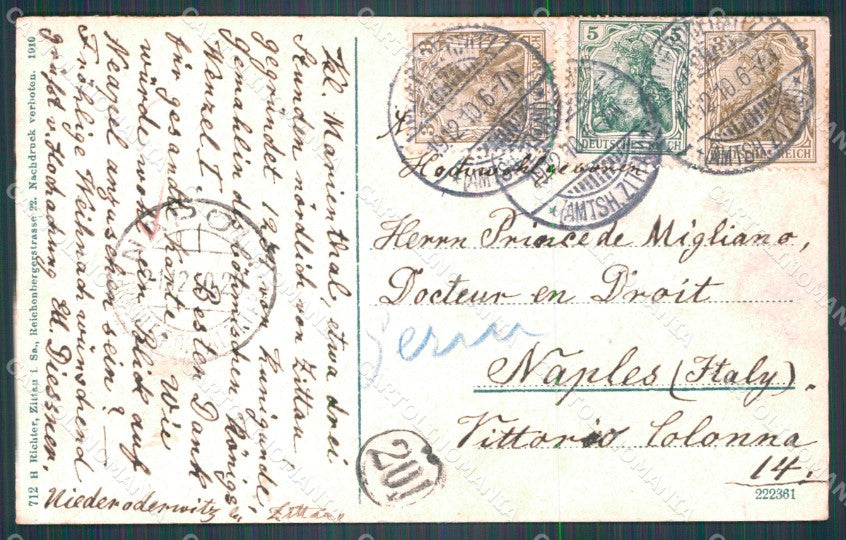 Kgl. Marienthal, etwa drei
Stunden nördlich von Zittau
gegründet 123 von Kunigunde,
Gemahlin d. böhmischen Königs
Wenzel I. Besten Dank
für gesandte Karte. Wie
würde wohl ein Blick auf
Neapel anzuschen sein? —
Fröhliche Weihnacht wünschend
grüßt v. Hochachtung M. Diessner.
Niederoderwitz b. Zittau
712 H Richter, Zittau i. Sa., Reichenbergerstrasse 22. Nachdruck verboten. 1910
5
3
DEUTSCHES REICH
REICH
19.12.10.6-7N
(AMTSH. ZITTAU)
Hochwohlgeboren
Herrn Prince de Migliano,
Docteur en Droit
Naples (Italy).
Vittoria Colonna
14.
201
222361
CARTOLINOMANIA